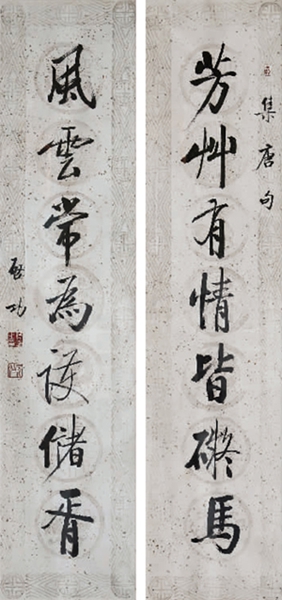 集唐句
芳艸有情皆礙馬
風雲常為護儲胥
啟功